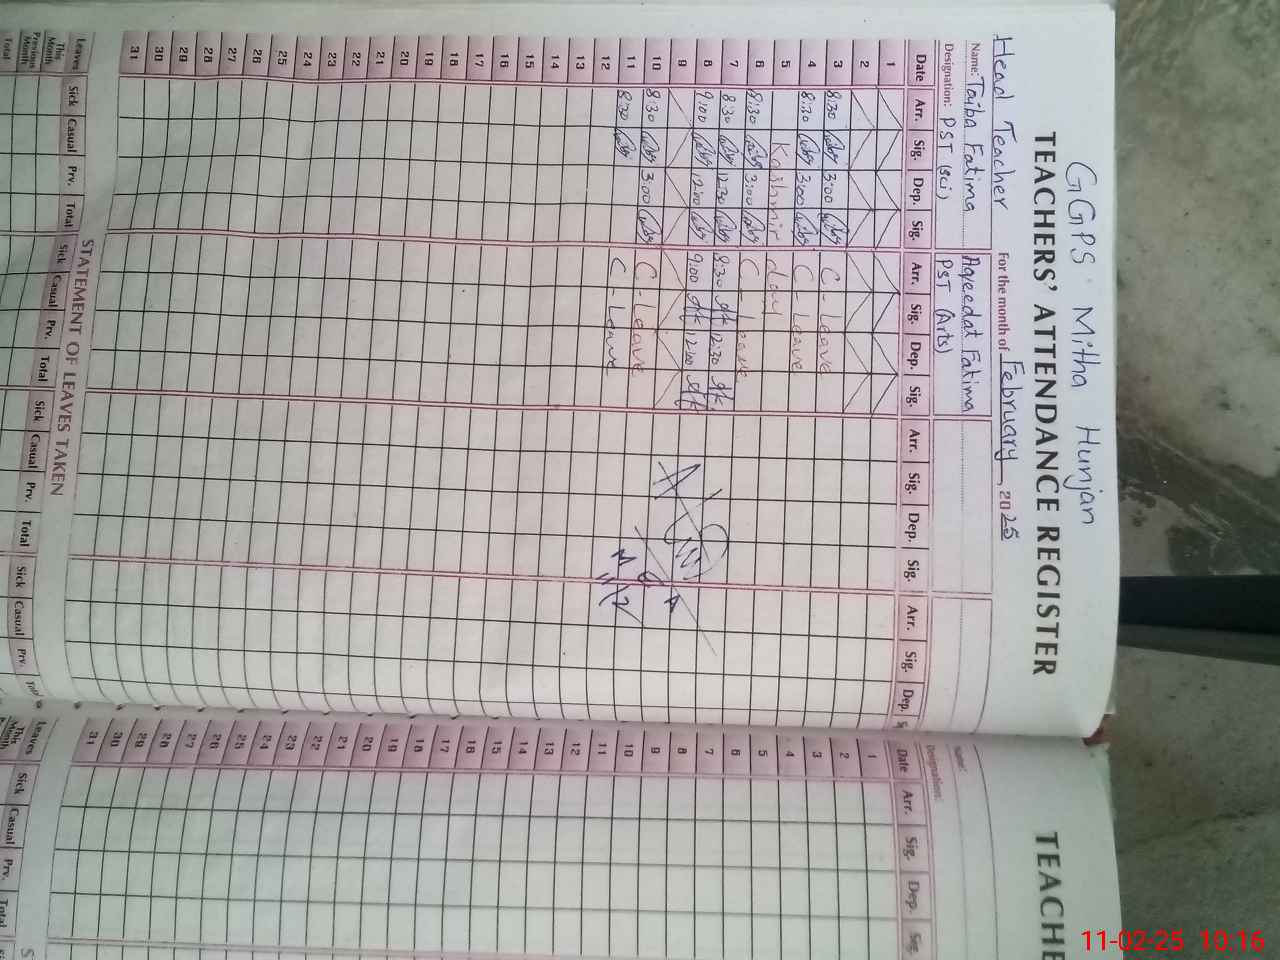 GGPS Mitha Hunjan
TEACHERS' ATTENDANCE REGISTER
Head Teacher For the month of February 2025
Name: Taiba Fatima Aqeedat Fatima
Designation: PST (Sci) PST (Arts)
Date Arr. Sig. Dep. Sig. Arr. Sig. Dep. Sig. Arr. Sig. Dep. Sig. Arr. Sig. Dep. S
1
2
3 8:30 3:00 C-Leave
4 8:30 3:00 C-Leave
5 Kashmir day
6 8:30 3:00 C-Leave
7 8:30 12:30 8:30 12:30
8 9:00 12:00 9:00 12:00
9
10 8:30 3:00 C-Leave
11 8:30 C-Leave
12
13
14
15
16
17
18
19
20
21
22
23
24
25
26
27
28
29
30
31
STATEMENT OF LEAVES TAKEN
Leaves Sick Casual Prv. Total Sick Casual Prv. Total Sick Casual Prv. Total Sick Casual Prv. Total
This Month
Previous Month
Total
TEACHE
Name:
Designation:
Date Arr. Sig. Dep. Sig.
1
2
3
4
5
6
7
8
9
10
11
12
13
14
15
16
17
18
19
20
21
22
23
24
25
26
27
28
29
30
31
S
Leaves Sick Casual Prv. Total
This Month
11-02-25 10:16